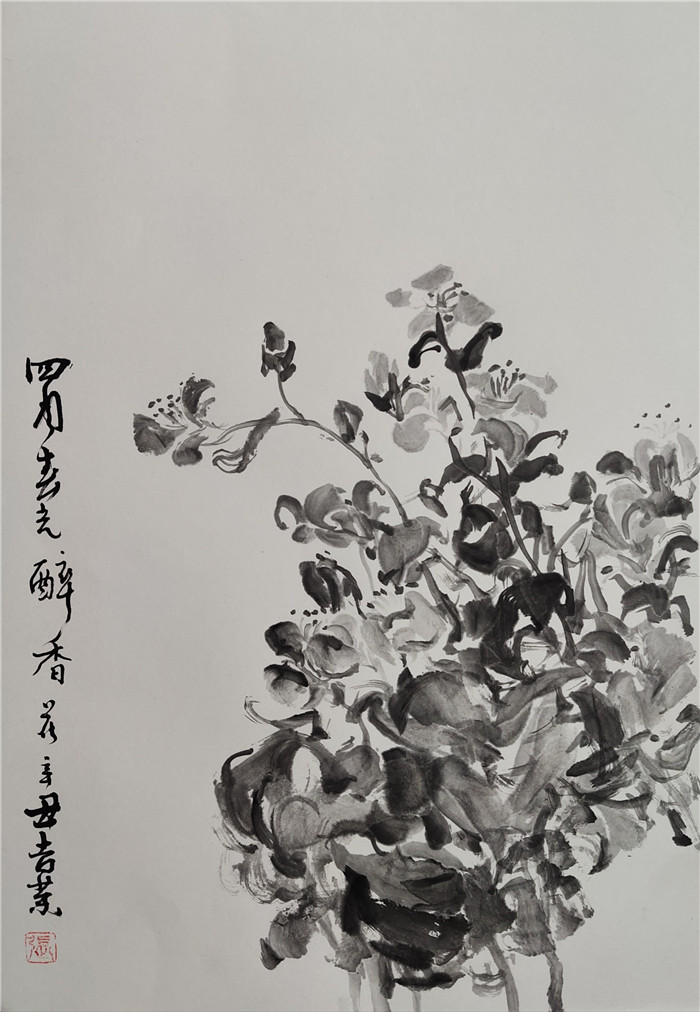 四月春光醉香花辛丑吉業
張